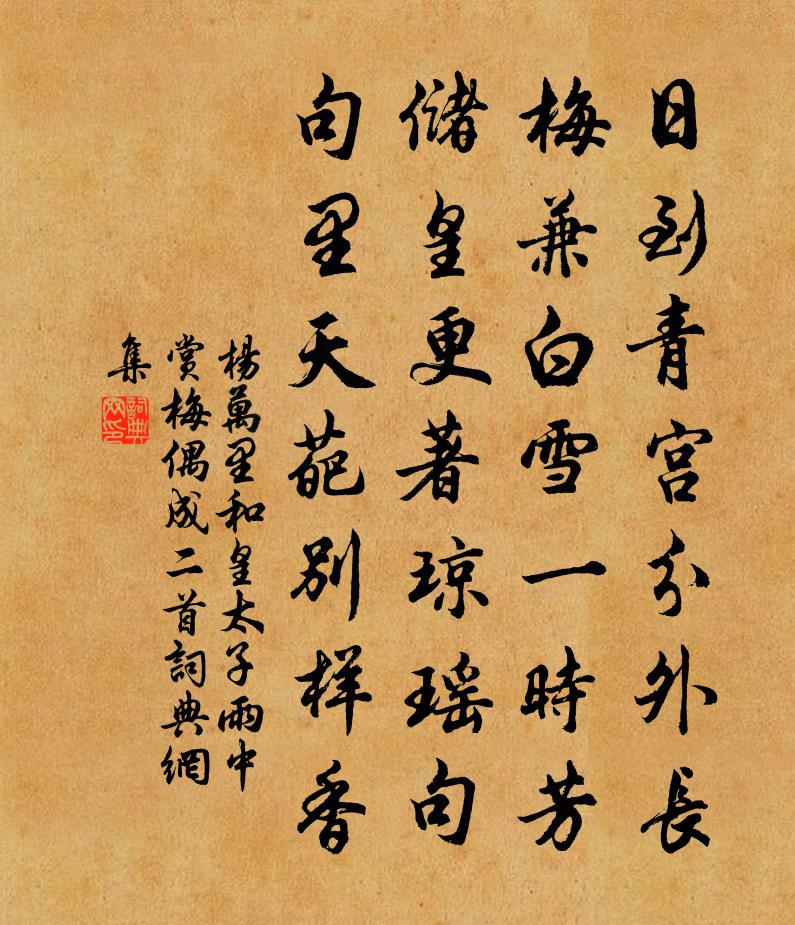 日到青宮分外長
梅兼白雪一時芳
儲皇更著琼瑶句
句里天葩別样香
楊萬里和皇太子雨中
賞梅偶成二首詞典網
集
詞典
网印